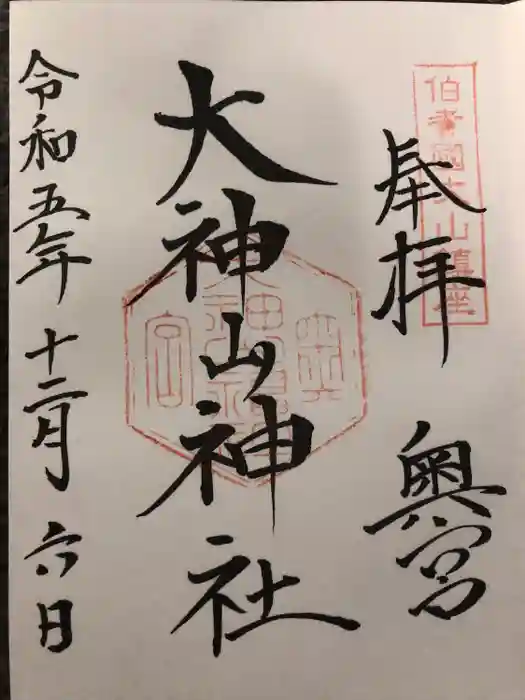 伯耆國大山鎮座
奉拝
奥宮
大神山神社
大神山神社
奥宮
令和五年十二月六日